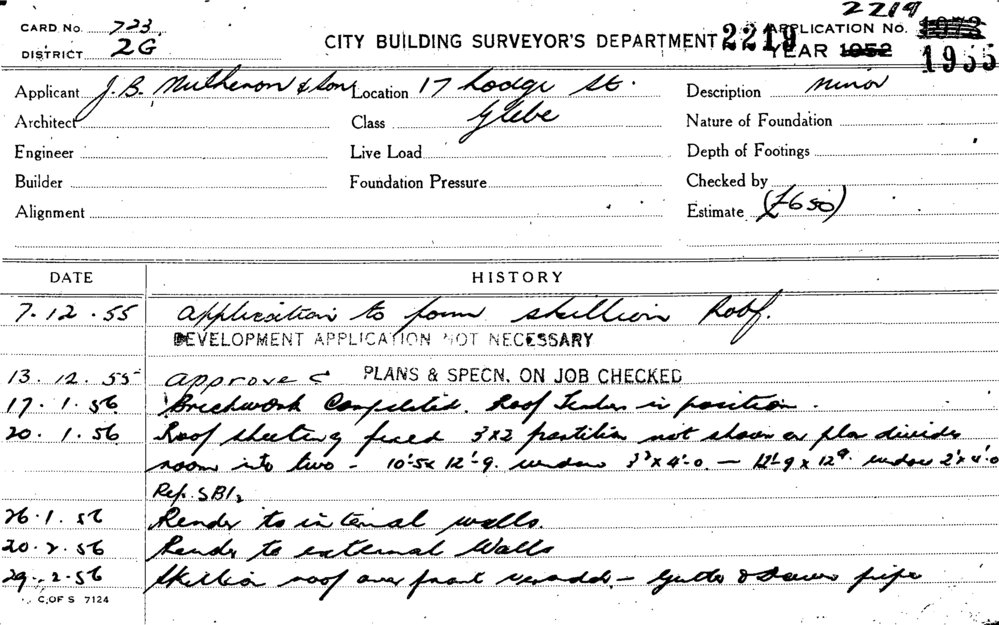 2219
CARD No. 723 CITY BUILDING SURVEYOR'S DEPARTMENT 2219 APPLICATION No. 1073
DISTRICT 2G YEAR 1952 1955
Applicant J. B. & Sons Location 17 Lodge St. Description Minor
Architect Class Glebe Nature of Foundation
Engineer Live Load Depth of Footings
Builder Foundation Pressure Checked by
Alignment Estimate (£650)
DATE HISTORY
7.12.55 Application to form skillion Roof.
DEVELOPMENT APPLICATION NOT NECESSARY
13.12.55 Approved PLANS & SPECN. ON JOB CHECKED
17.1.56 Brickwork Completed. Roof Timber in position.
20.1.56 Roof sheeting fixed 3x2 partition not shown on plan divides
room into two - 10'-5 x 12'-9. window x 4'-0 - 12'-9 x window 2' x 4'-0
Rep. SBI
26.1.56 Render to internal walls
20.2.56 Render to external Walls
29.2.56 Skillion roof over front verandah - Gutter & Down pipe
C. OF S 7124